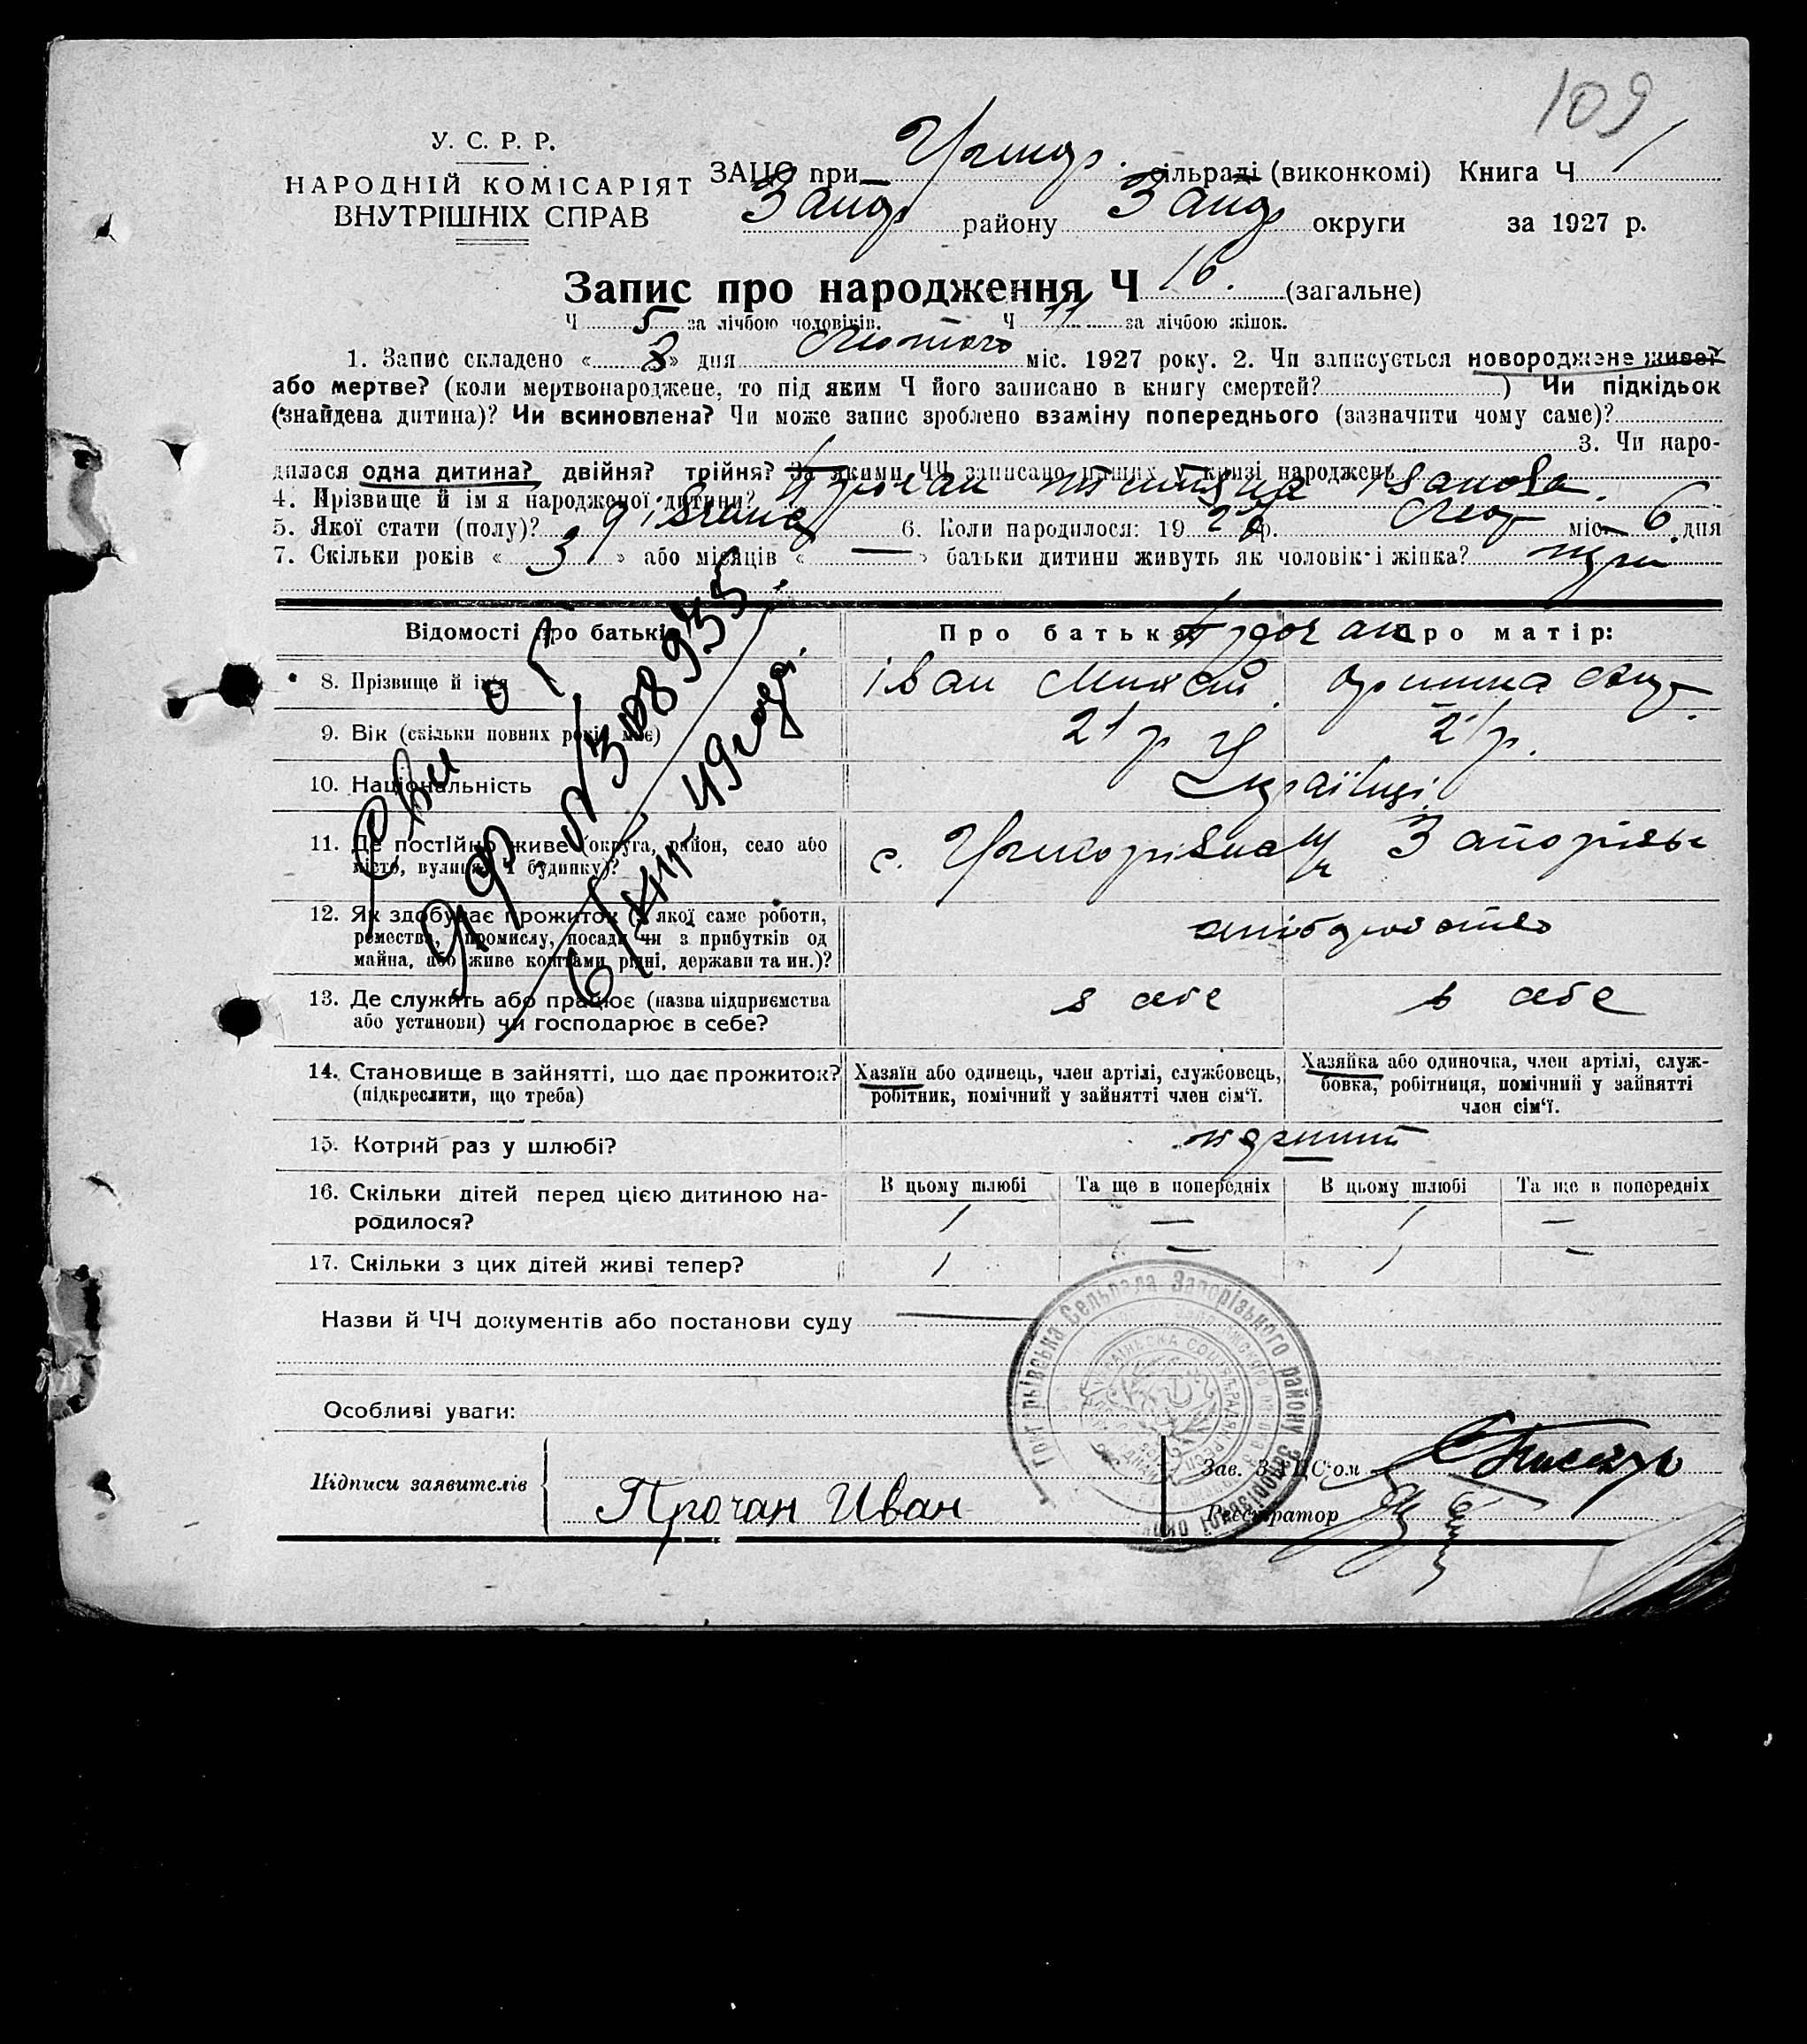 109
У. С. Р. Р.
НАРОДНІЙ КОМІСАРІЯТ
ВНУТРІШНІХ СПРАВ
ЗАЦС при сільраді (виконкомі) Книга Ч 1
Запор району Запор округи за 1927 р.
Запис про народження Ч 16. (загальне)
Ч 5 за лічбою чоловіків. Ч 11 за лічбою жінок.
1. Запис складено « 8 » дня Лютого міс. 1927 року. 2. Чи записується новороджене живе?
або мертве? (коли мертвонароджене, то під яким Ч його записано в книгу смертей? ) Чи підкідьок
(знайдена дитина)? Чи всиновлена? Чи може запис зроблено взаміну попереднього (зазначити чому саме)?
3. Чи наро-
дилася одна дитина? двійня? трійня? За якими ЧЧ записано інших у книзі народжень
4. Прізвище й ім'я народженої дитини? Прочан Титяна Іванова.
5. Якої стати (полу)? дівчина 6. Коли народилося: 19 27 р. Лют міс. 6 дня
7. Скільки років « 3 » або місяців « — » батьки дитини живуть як чоловік і жінка? три
Відомості про батьків Про батька: Про матір:
Прочан
8. Прізвище й ім'я Іван
9. Вік (скільки повних років має) 21 р 21 р.
10. Національність Українці
11. Де постійно живе (округа, район, село або
місто, вулиця, Ч будинку)? с. Запорізьк
12. Як здобуває прожиток (з якої саме роботи,
ремества, промислу, посади чи з прибутків од
майна, або живе коштами рідні, держави та ин.)? хліборобство
13. Де служить або працює (назва підприємства
або установи) чи господарює в себе? в себе в себе
14. Становище в зайнятті, що дає прожиток?
(підкреслити, що треба)
Хазяїн або одинець, член артілі, службовець,
робітник, помічний у зайнятті член сім'ї.
Хазяйка або одиночка, член артілі, служ-
бовка, робітниця, помічний у зайнятті
член сім'ї.
15. Котрий раз у шлюбі? перший
16. Скільки дітей перед цією дитиною на-
родилося?
В цьому шлюбі Та ще в попередніх В цьому шлюбі Та ще в попередніх
1 — 1 —
17. Скільки з цих дітей живі тепер? 1 — 1 —
Назви й ЧЧ документів або постанови суду
Особливі уваги:
Підписи заявителів
Прочан Иван
Зав. ЗАЦС'ом
Реєстратор